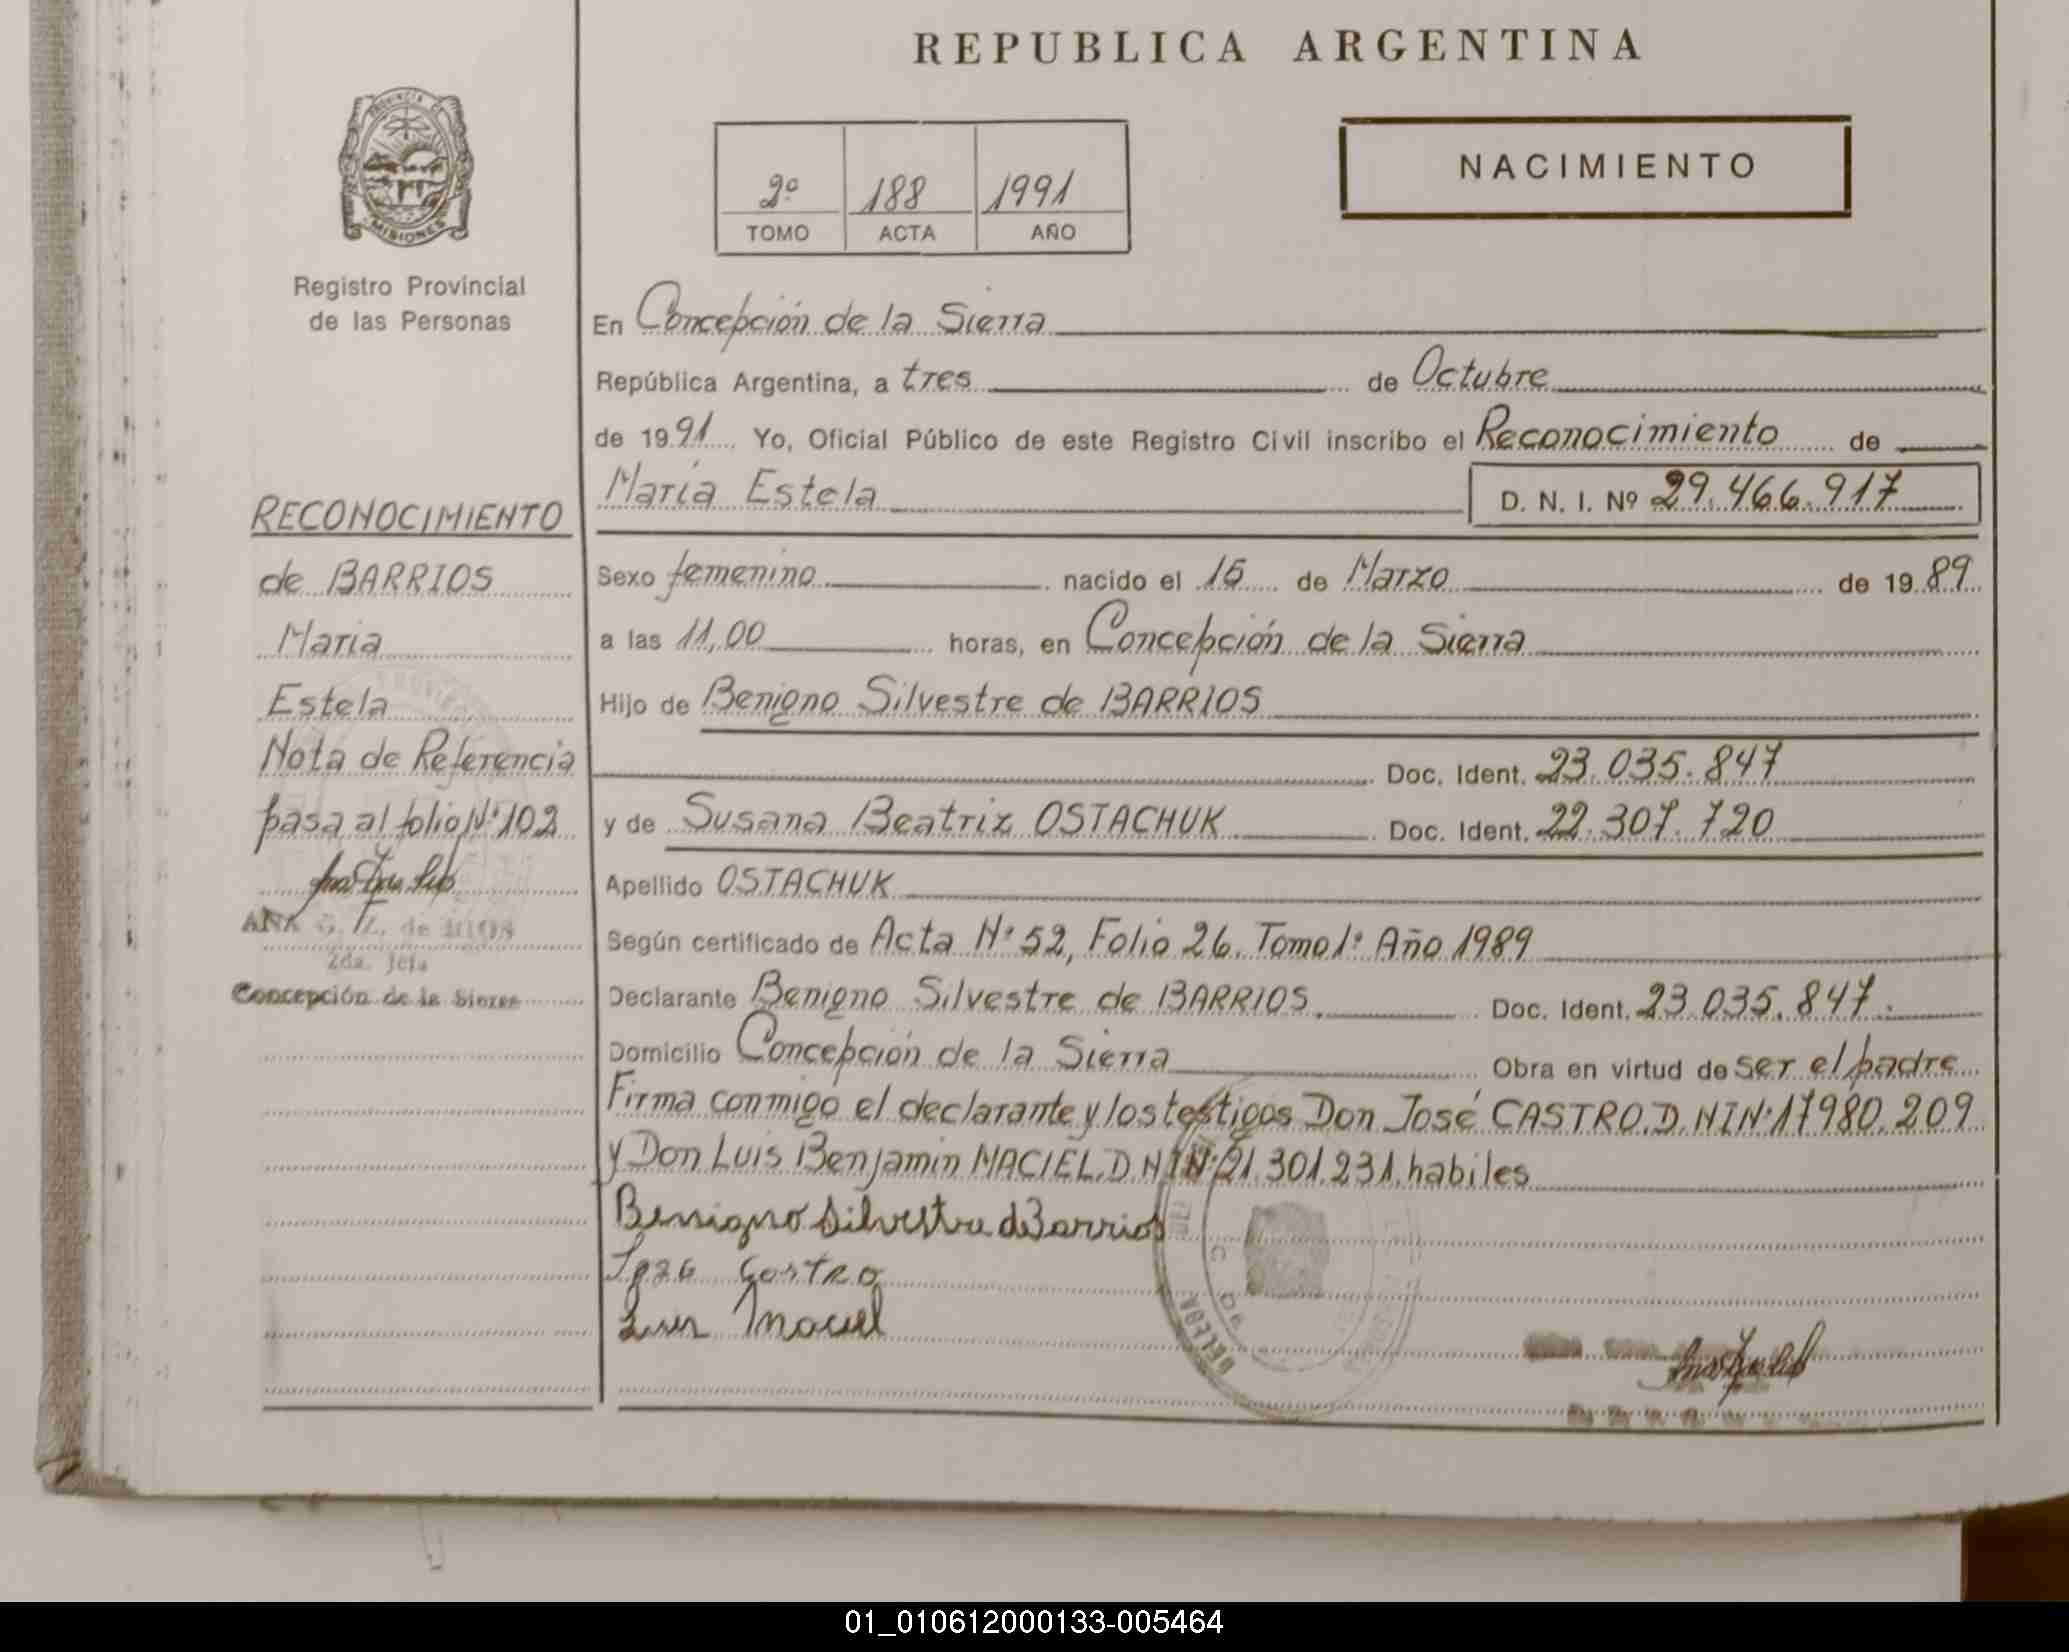 REPUBLICA ARGENTINA
PROVINCIA DE
MISIONES
Registro Provincial
de las Personas
2º 188 1991
TOMO ACTA AÑO
NACIMIENTO
En Concepción de la Sierra
República Argentina, a tres de Octubre
de 1991 Yo, Oficial Público de este Registro Civil inscribo el Reconocimiento de
María Estela D. N. I. Nº 29.466.917
Sexo femenino nacido el 15 de Marzo de 1989
a las 11,00 horas, en Concepción de la Sierra
Hijo de Benigno Silvestre de BARRIOS
Doc. Ident. 23.035.847
y de Susana Beatriz OSTACHUK Doc. Ident. 22.307.720
Apellido OSTACHUK
Según certificado de Acta Nº 52, Folio 26. Tomo 1º Año 1989
Declarante Benigno Silvestre de BARRIOS. Doc. Ident. 23.035.847.
Domicilio Concepción de la Sierra Obra en virtud de ser el padre
Firma conmigo el declarante y los testigos Don José CASTRO. D. N I Nº 17980.209
y Don Luis Benjamin MACIEL. D. N I Nº 21.301.231. habiles
Benigno Silvestre de Barrios
Castro
Luis Maciel
RECONOCIMIENTO
de BARRIOS
Maria
Estela
Nota de Referencia
pasa al folio Nº 102
ANA de RIOS
2da. Jefa
Concepción de la Sierra
01_010612000133-005464